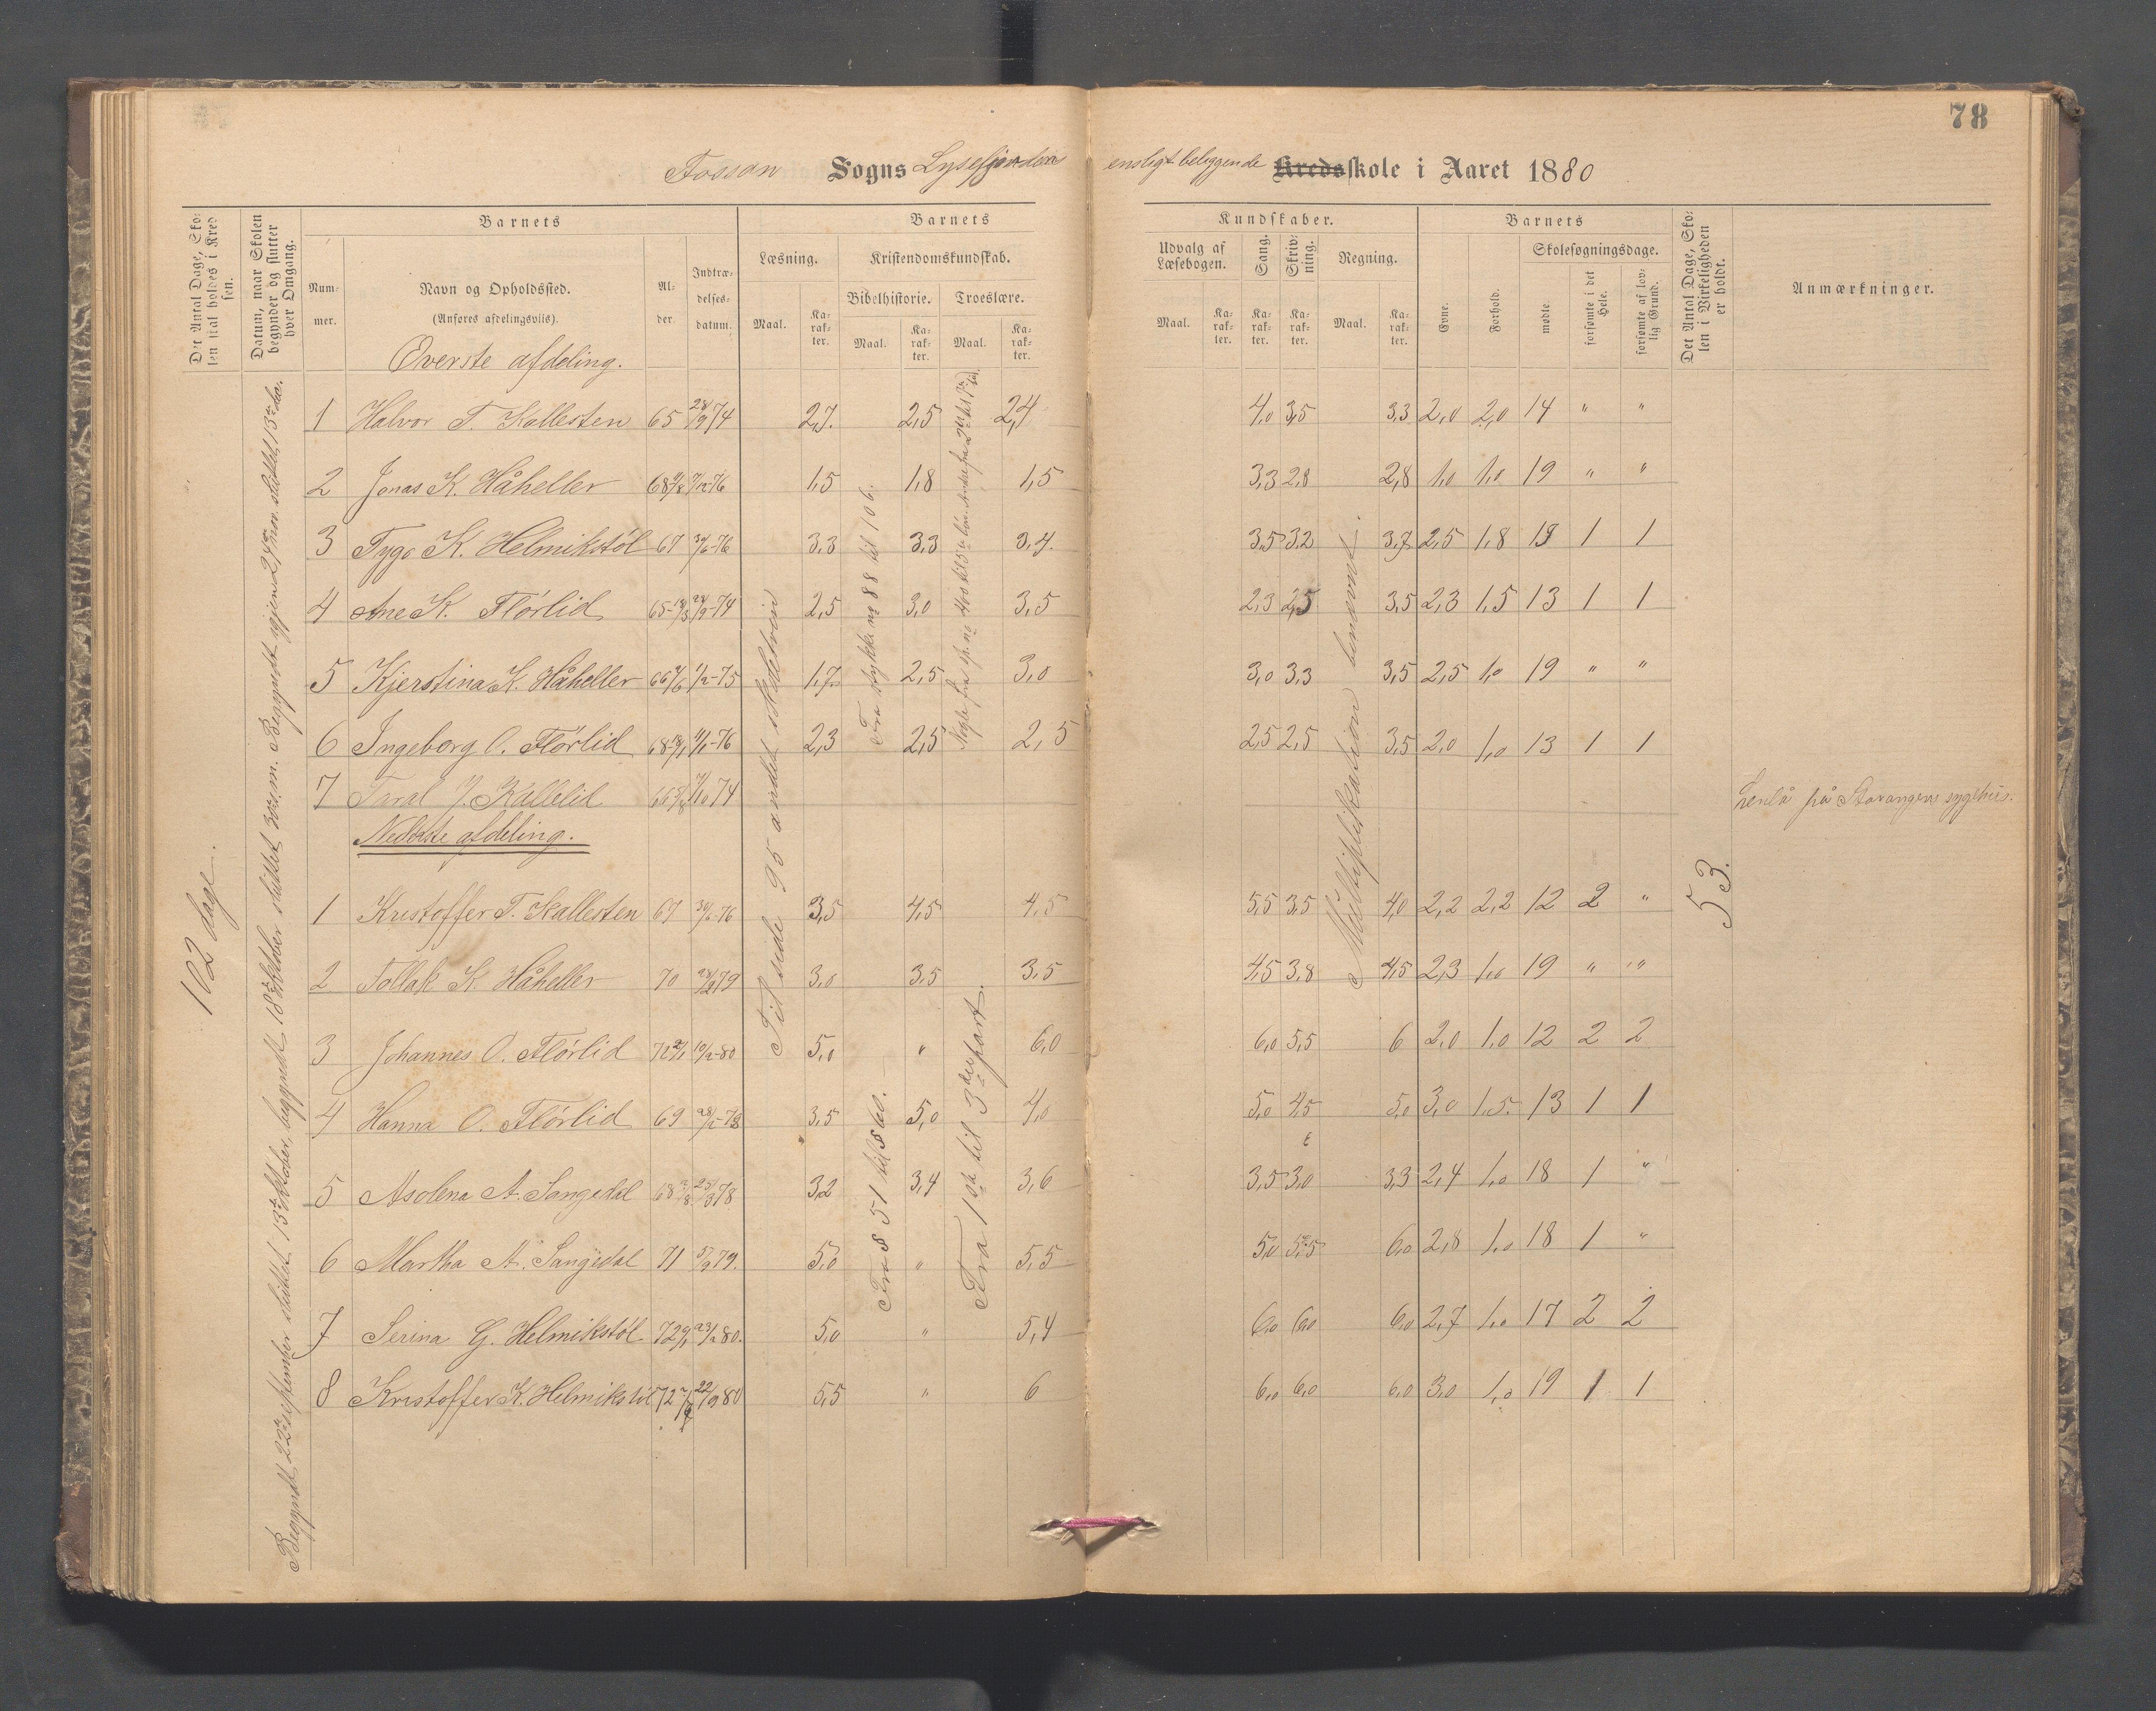 78
Fossan Sogns Lysefjorden ensligt beliggende Kredsskole i Aaret 1880
Det Antal Dage, Skolen skal holdes i Kredsen.
Datum, naar Skolen begynder og slutter hver Omgang.
Barnets
Nummer.
Navn og Opholdssted.
(Anføres afdelingsvis).
Alder.
Indtrædelsesdatum.
Barnets
Læsning.
Kristendomskundskab.
Bibelhistorie.
Troeslære.
Maal.
Karakter.
Maal.
Karakter.
Maal.
Karakter.
Kundskaber.
Udvalg af Læsebogen.
Sang.
Skrivning.
Regning.
Maal.
Karakter.
Karakter.
Karakter.
Maal.
Karakter.
Barnets
Evne.
Forhold.
Skolesøgningsdage.
mødte
forsømte i det Hele.
forsømte af lovlig Grund.
Det Antal Dage, Skolen i Virkeligheden er holdt.
Anmærkninger.
102 dage.
Begyndt 22de september sluttet 13de oktober, begyndt 18de oktober sluttet 3die m. Begyndt igjen 24de nov. sluttet 13de
Til side 95 andet
Fra stykke no 88 til 106.
Fra § 51 til § 60.
Fra 1ste til 3die part.
Multiplikation benævnt.
53.
Øverste afdeling.
1 Halvor T. Kallesten 65 28/9 74 2,7. 2,5 2,4 4,0 3,5 3,3 2,0 2,0 14 " "
2 Jonas K. Håheller 68 76 1,5 1,8 1,5 3,3 2,8 2,8 1,0 1,0 19 " "
3 Tygo K. Helmikstøl 67 76 3,3 3,3 3,4. 3,5 3,2 3,7 2,5 1,8 13 1 1
4 Ane K. Flørlid 65 74 2,5 3,0 3,5 2,3 2,5 3,5 2,3 1,5 13 1 1
5 Kjerstina K. Håheller 66 75 1,7 2,5 3,0 3,0 3,3 3,5 2,5 1,0 19 " "
6 Ingeborg O. Flørlid 68 76 2,3 2,5 2,5 2,5 2,5 3,5 2,0 1,0 13 1 1
7 Taral J. Kallelid 66 74 på Stavangers sygehus.
Nederste afdeling.
1 Kristoffer T. Kallesten 67 76 3,5 4,5 4,5 5,5 3,5 4,0 2,2 2,2 12 2 "
2 Tollak K. Håheller 70 79 3,0 3,5 3,5 4,5 3,8 4,5 2,3 1,0 19 " "
3 Johannes O. Flørlid 72 80 5,0 " 6,0 6,0 5,5 6 2,0 1,0 12 2 2
4 Hanna O. Flørlid 69 78 3,5 5,0 4,0 5,0 4,5 5,0 3,0 1,5. 13 1 1
5 Asolena A. Songedal 68 25/3 78 3,2 3,4 3,6 3,5 3,0 3,3 2,4 1,0 18 1 "
6 Martha A. Songedal 71 79. 5,0 " 5,5 5,0 5,5 6,0 2,8 1,0 18 1 "
7 Serina G. Helmikstøl 72 80. 5,0 " 5,4 6,0 6,0 6,0 2,7 1,0 17 2 2
8 Kristoffer K. Helmikstøl 72 22/9 80 5,5 " 6 6,0 6,0 6,0 3,0 1,0 19 1 1